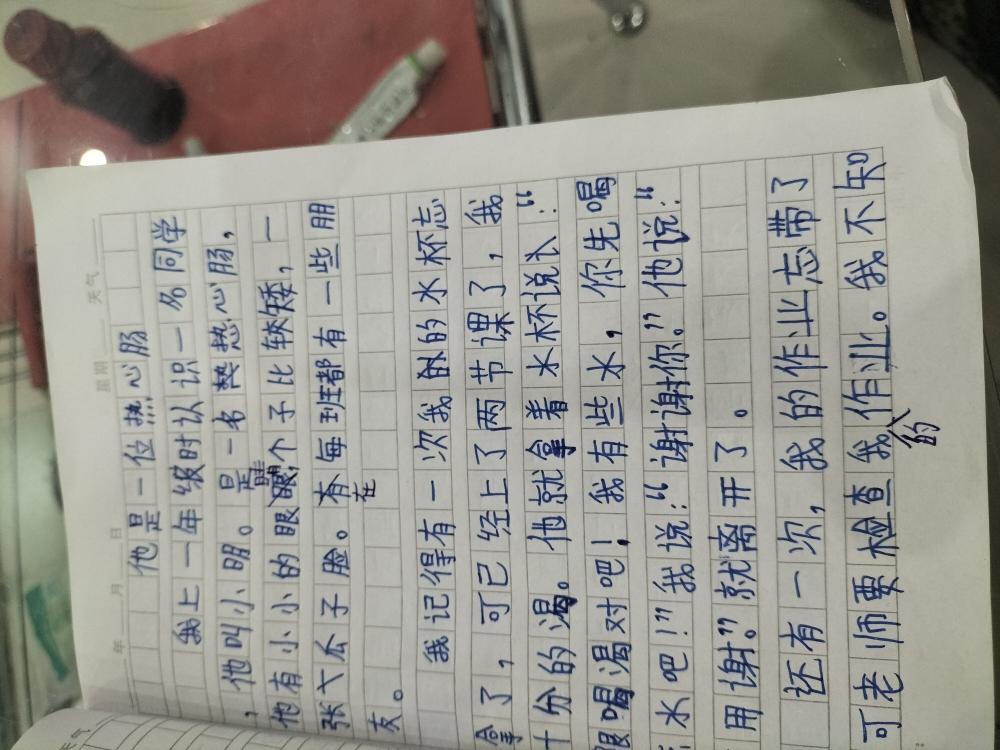 年 月 日 星期 天气
他是一位热心肠
我上一年级时认识一名同学
他叫小明。是一名热心肠，
他有小小的眼睛，个子比较矮，一
张大瓜子脸。在每班都有一些朋
友。
我记得有一次我的水杯忘
拿了，可已经上了两节课了，我
十分的渴。他就拿着水杯说：“
喝对吧！我有些水，你先喝
水吧！”我说：“谢谢你。”他说：“
用谢。”就离开了。
还有一次，我的作业忘带了
可老师要检查我的作业。我不知
天气